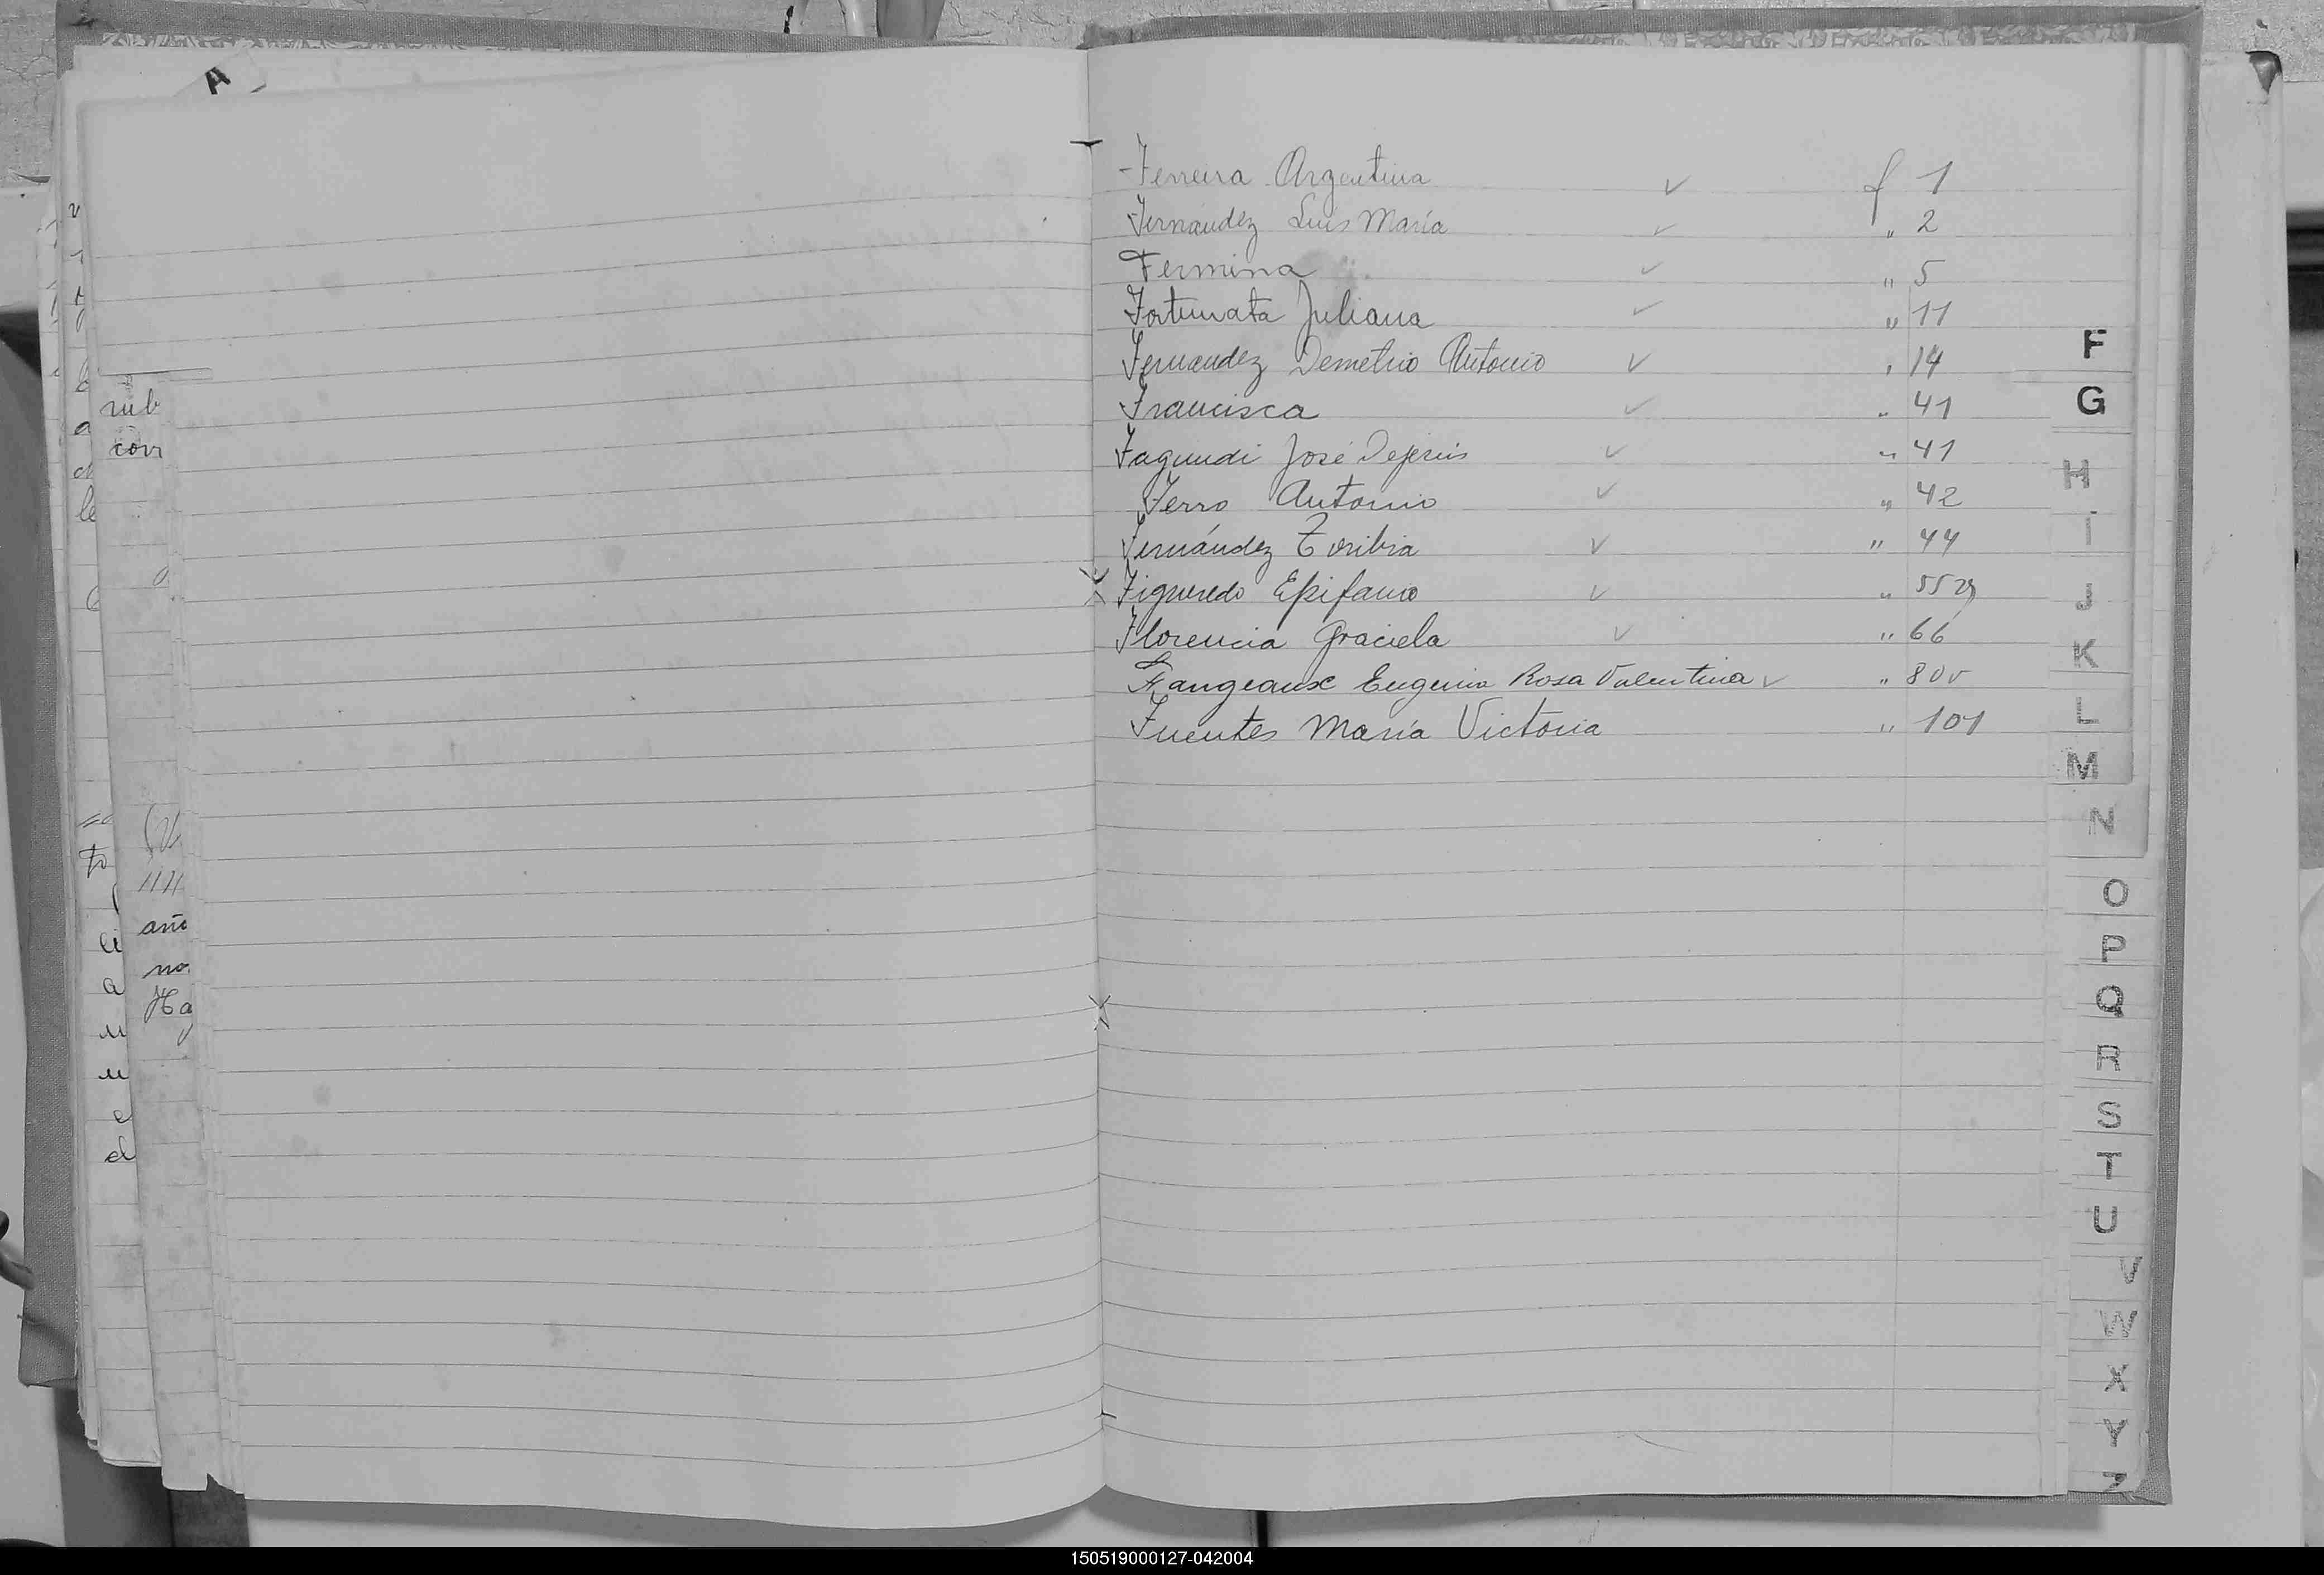 A
rub
con
año
no
Ha
Ferreira Argentina ✓ f 1
Fernández Luis María ✓ " 2
Fermina ✓ " 5
Fortunata Juliana ✓ " 11
Fernandez Demetrio Antonio ✓ " 14
Francisca ✓ " 41
Fagundi José Dejesús ✓ " 41
Ferro Antonio ✓ " 42
Fernández Toribia ✓ " 44
X Figueredo Epifanio ✓ " 55
Florencia Graciela ✓ " 66
Frangeaux Eugenia Rosa Valentina ✓ " 80v
Fuentes María Victoria " 101
F
G
H
I
J
K
L
M
N
O
P
Q
R
S
T
U
V
W
X
Y
Z
150519000127-042004